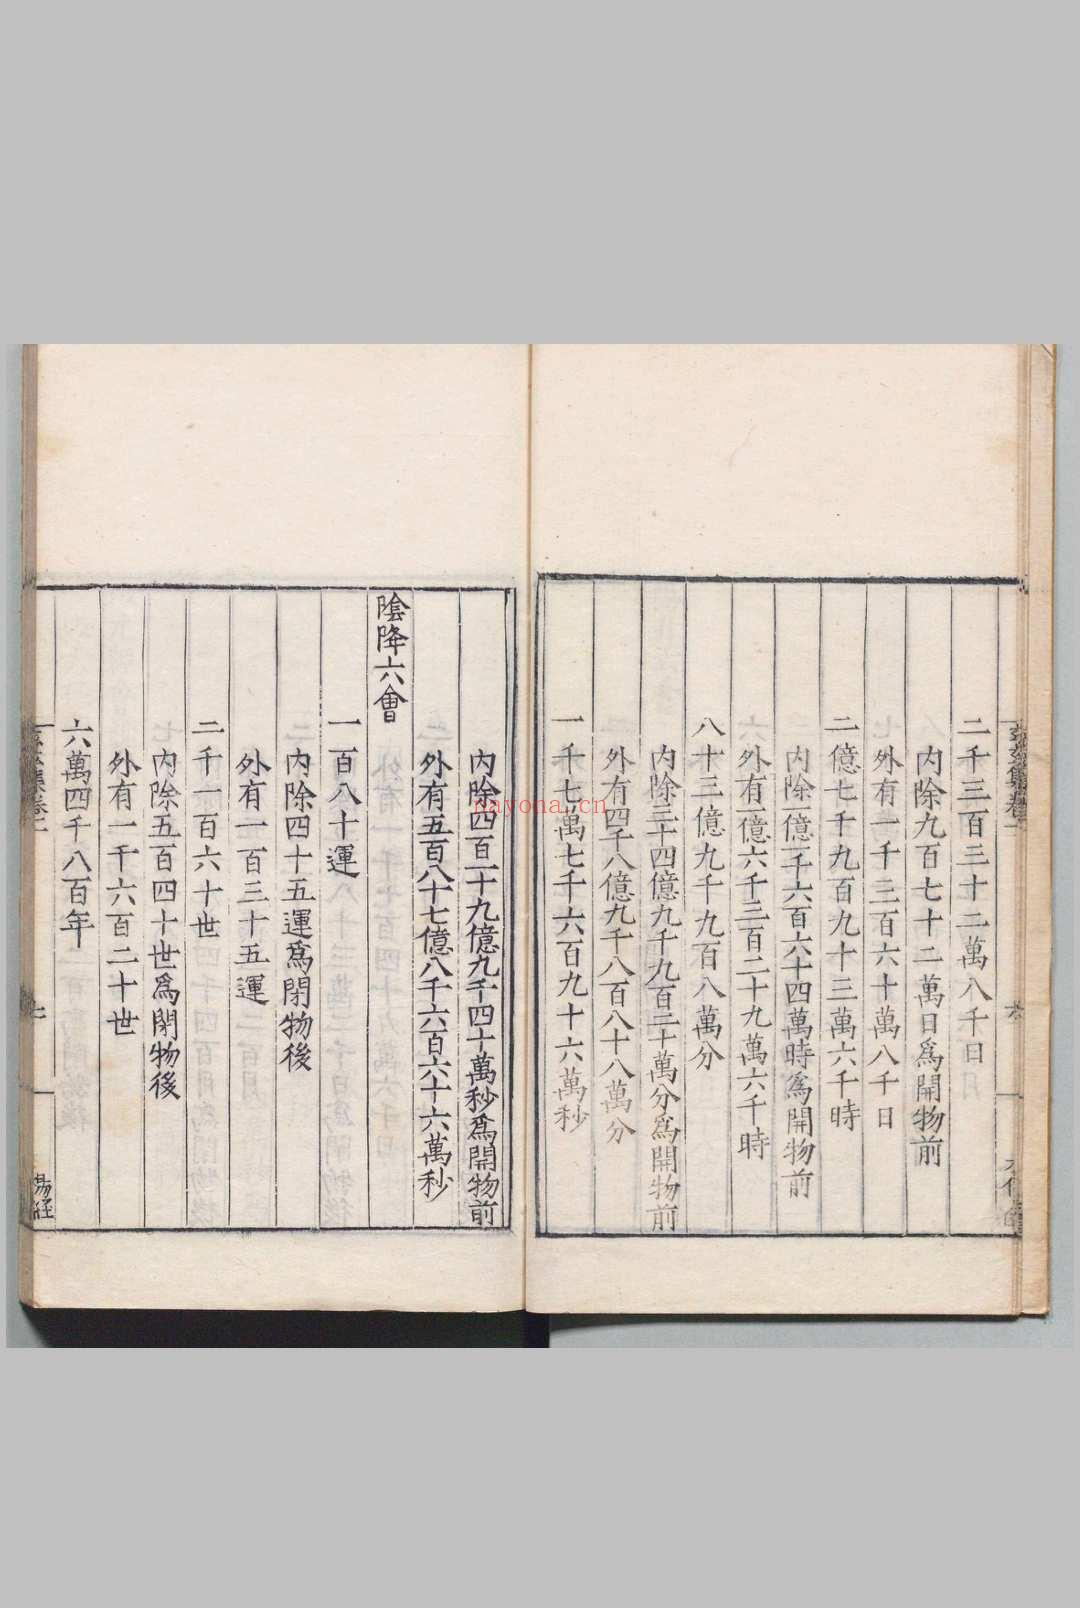 二千三百三十二萬八千日
內除九百七十二萬日爲開物前
外有一千三百六十萬八千日
二億七千九百九十三萬六千時
內除一億一千六百六十四萬時爲開物前
外有一億六千三百二十九萬六千時
八十三億九千九百八萬分
內除三十四億九千九百二十萬分爲開物前
外有四千八億九千八百八十八萬分
一千七萬七千六百九十六萬秒
內除四百一十九億九千四十萬秒爲開物前
外有五百八十七億八千六百六十六萬秒
陰降六會
一百八十運
內除四十五運爲閉物後
外有一百三十五運
二千一百六十世
內除五百四十世爲閉物後
外有一千六百二十世
六萬四千八百年
七
nayona.cn